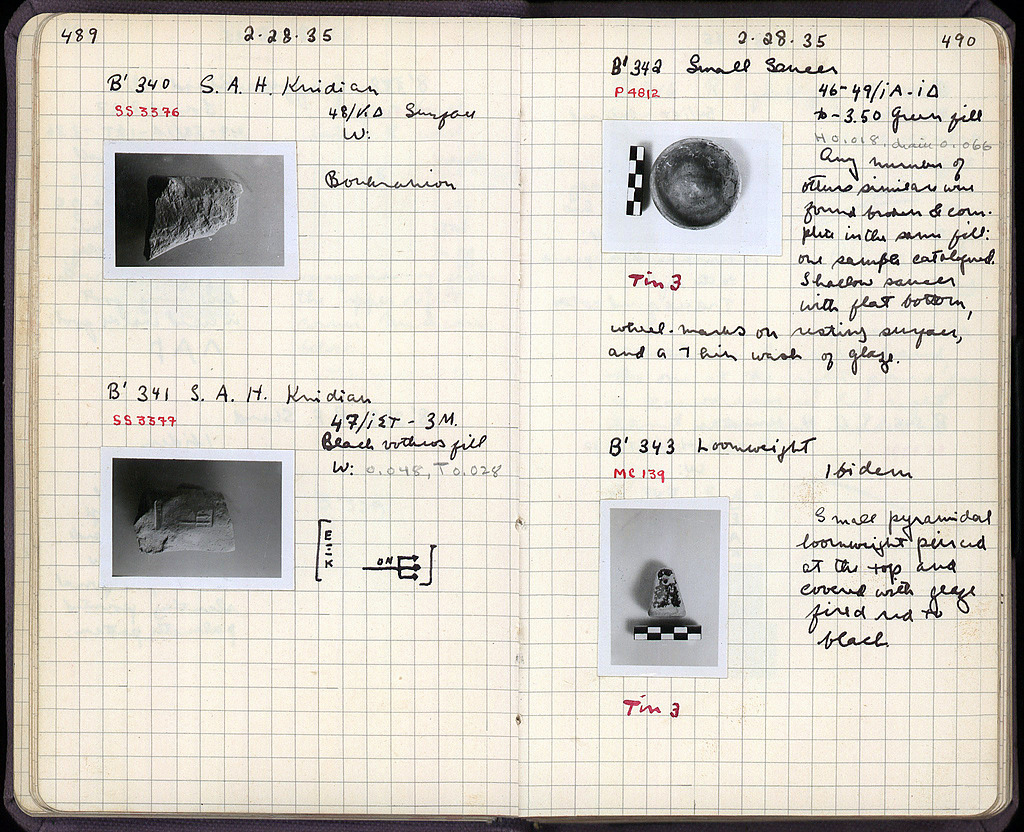 489
2·28·35
B' 340 S. A. H. Knidian
SS 3376
48/ Surface
W:
Boukranion
B' 341 S. A. H. Knidian
SS 3377
47/iΣΤ - 3 M.
Black bothros fill
W: 0.048, T 0.028
[ΕΞΚ ΟΝ ]
2·28·35
490
B' 342 Small Saucer
P 4812
46-49/iA-iΔ
to -3.50 Green fill
H 0.018, diam 0.066
Any number of
others similar were
found broken & com-
plete in the same fill:
one sample catalogued.
Shallow saucer
with flat bottom,
Tin 3
wheel-marks on resting surface,
and a thin wash of glaze.
B' 343 Loomweight
MC 139
Ibidem
Small pyramidal
loomweight pierced
at the top and
covered with glaze
fired red to
black.
Tin 3